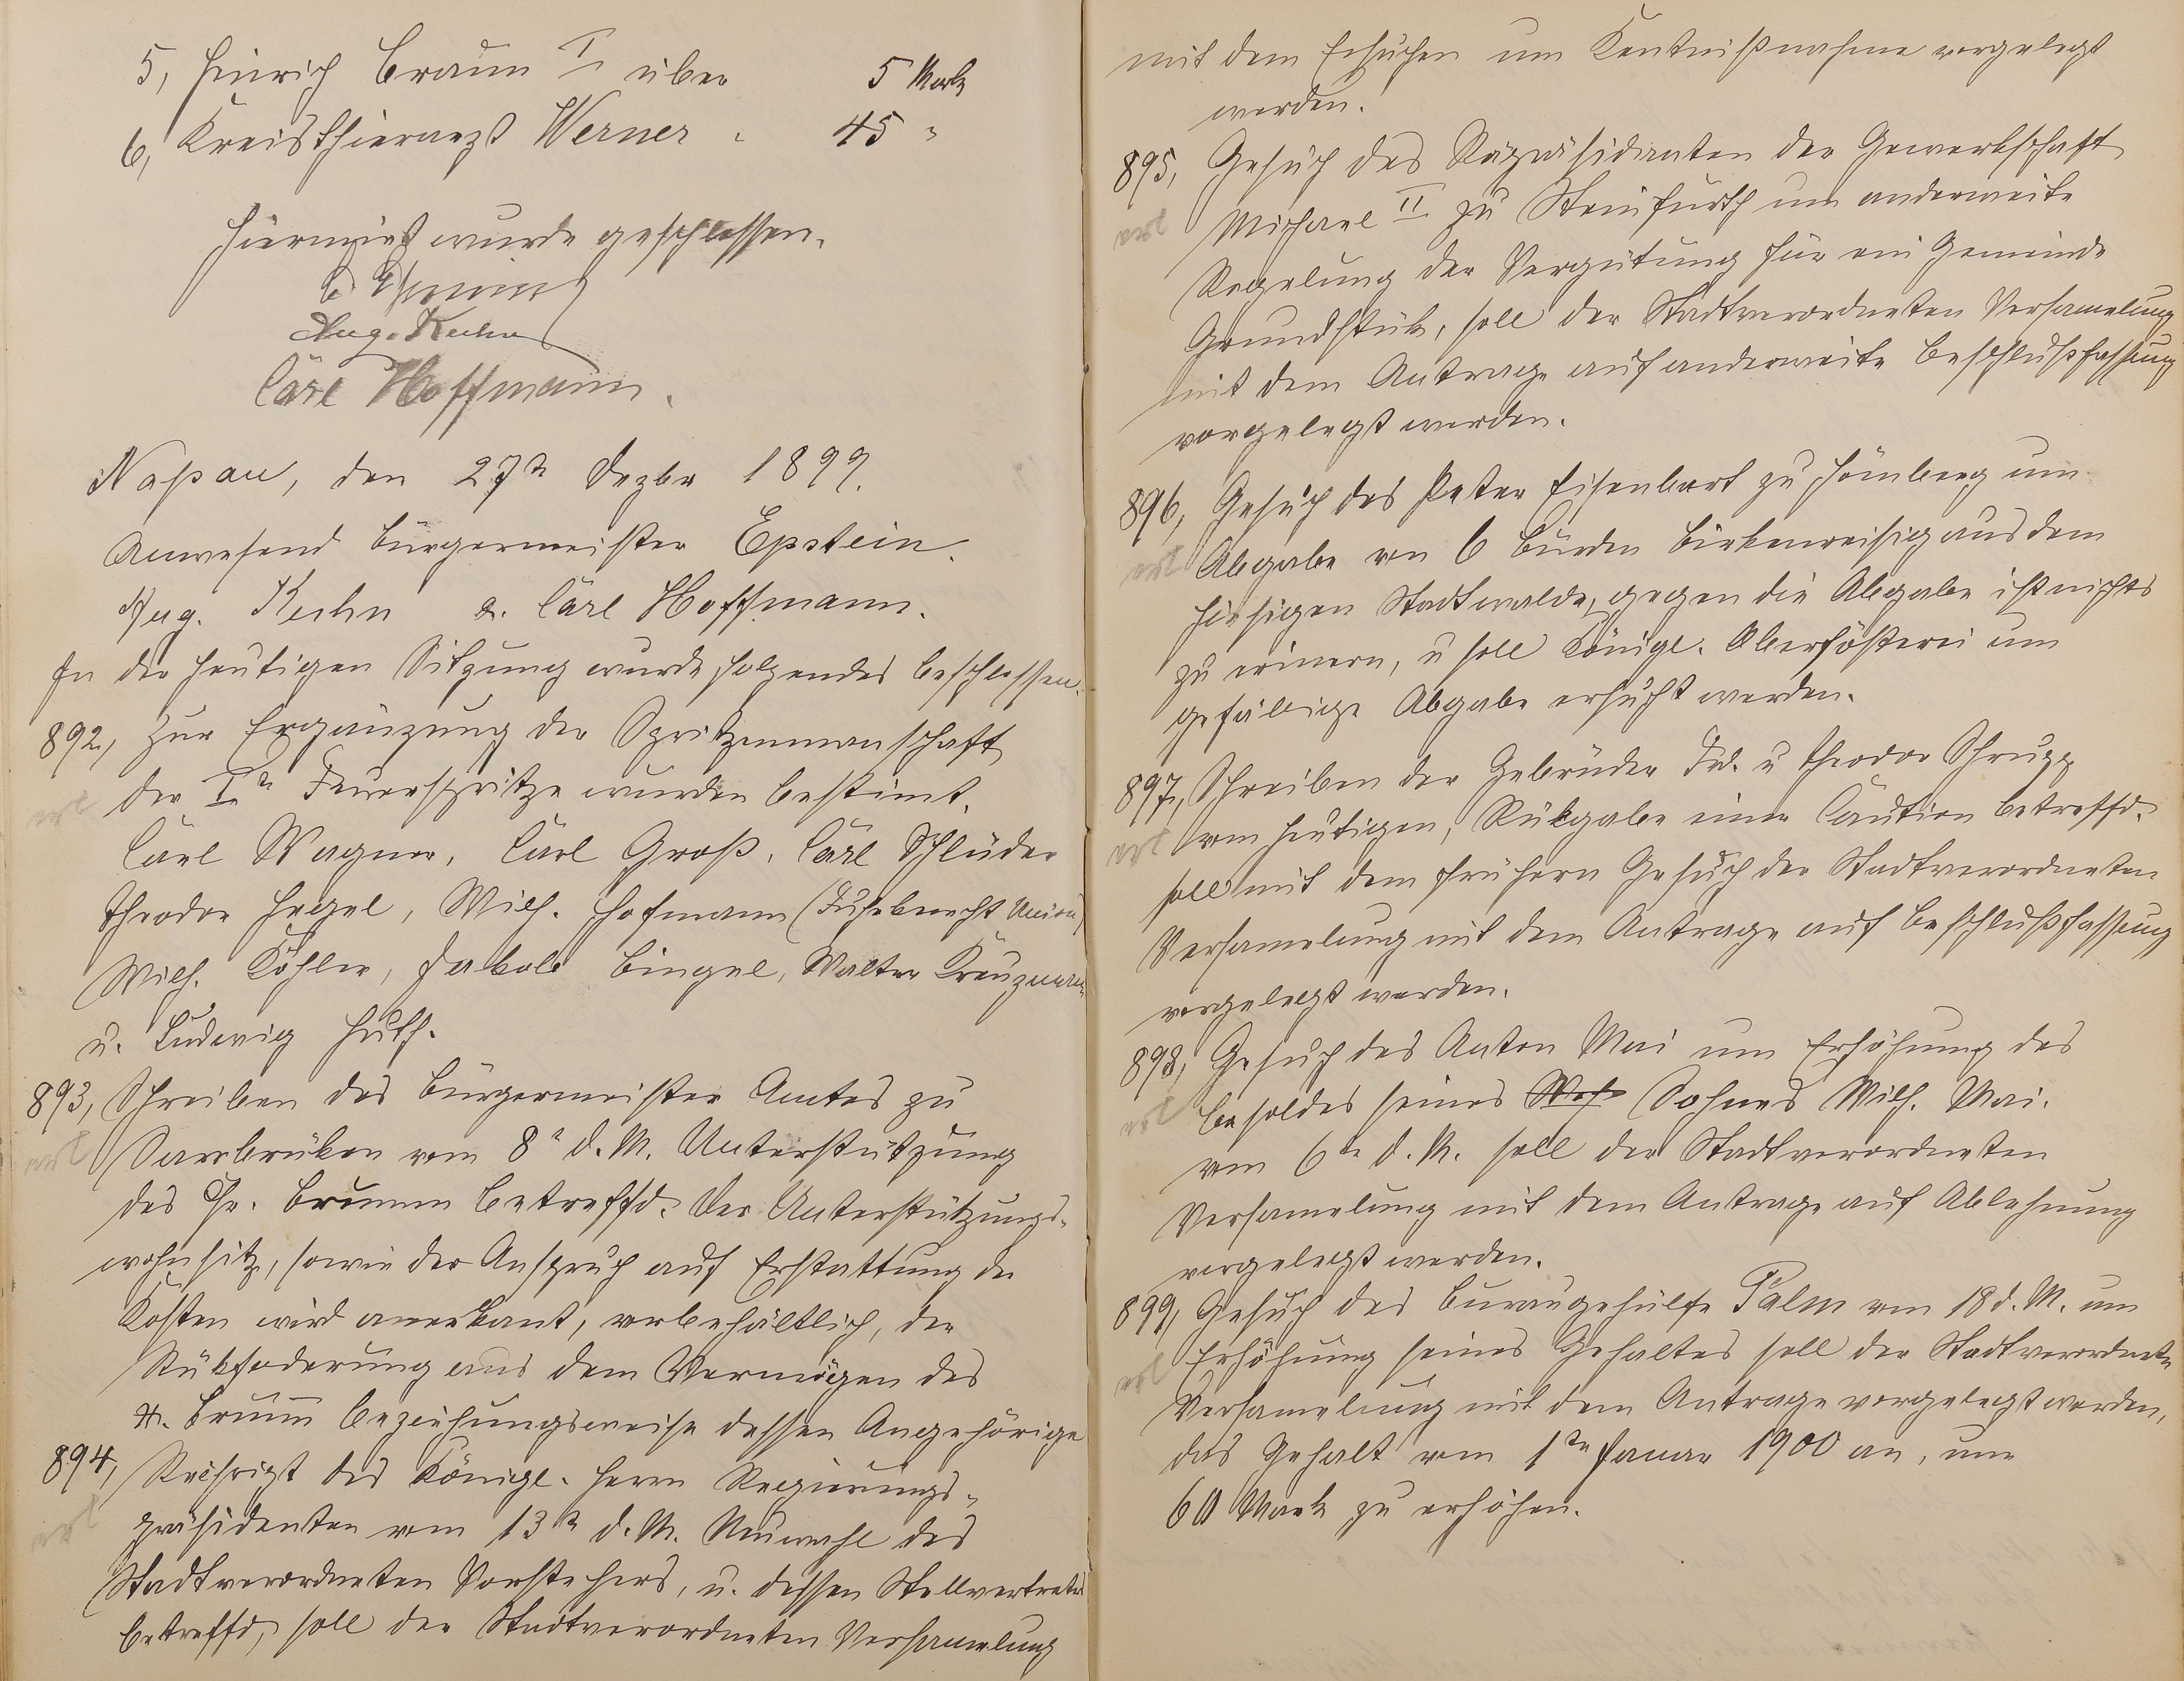 5, Heinrich Braun I über 5 Mark
6, Kreisthierarzt Werner " 45 "
Hiermit wurde geschlossen.
Aug. Kuhn
Carl Hoffmann.
Naßau, den 27n Dezbr 1899.
Anwesend Bürgermeister Epstein.
Aug. Kuhn u. Carl Hoffmann.
In der heutigen Sitzung wurde folgendes beschlossen.
892, Zur Ergänzung der Spritzenmanschaft
erl der In Feuerspritze wurden bestimt.
Carl Wagner, Carl Groß, Carl Schlüder
Theodor Hegel, Wilh. Hofmann (Fuhrknecht Union)
Wilh. Köhler, Jakob Bingel, Walter Kreuzmann
u. Ludwig Huth.
893, Schreiben des Bürgermeister Amtes zu
erl Saarbrüken vom 8n d. M. Unterstützung
des Chr. Brumm betreffd. Der Unterstützungs-
wohnsitz, sowie der Anspruch auf Erstattung der
Kosten wird anerkant, vorbehältlich, der
Rükfoderung aus dem Vermögen des
Brum̅ beziehungsweise dessen Angehörige
894, Rescript des Königl. Herrn Regierungs-
erl präsidenten vom 13n d. M. Neuwahl des
Stadtverordneten Vorstehers, u. dessen Stellvertreter
betreffd, soll der Stadtverordneten Versamelung
mit dem Ersuchen um Kentnißnahme vorgelegt
werden.
895, Gesuch des Räpräsidanten der Gewerkschaft
erl Michael II zu Steinfurth um anderweite
Regelung der Vergütung für ein Gemeinde
Grundstük, soll der Stadtverordneten Versamelung
mit dem Antrage auf anderweite Beschlußfassung
vorgelegt werden.
896, Gesuch des Peter Eisenbart zu Hömberg um
erl Abgabe von 6 Bürden Birkenreisig aus dem
hiesigen Stadtwalde, gegen die Abgabe ist nichts
zu erinern, u soll Königl. Oberfösterei um
gefällige Abgabe ersucht werden.
897, Schreiben der Gebrüder Frd. u Theodor Schrupp
erl vom heutigen, Rükgabe einer Caution betreffd.
soll mit dem frühern Gesuch der Stadtverordneten
Versamelung mit dem Antrage auf Beschlußfassung
vorgelegt werden.
898, Gesuch des Anton Mai um Erhöhung des
erl Besoldes seines Sohnes Wilh. Mai.
vom 6tn d. M. soll der Stadtverordneten
Versamelung mit dem Antrage auf Ablehnung
vorgelegt werden.
899, Gesuch des Buraugehülfe Palm vom 18 d. M. um
erl Erhöhung seines Gehaltes soll der Stadtverordneten
Versamelung mit dem Antrage vorgelegt werden,
das Gehalt vom 1tn Januar 1900 an, um
60 Mark zu erhöhen.